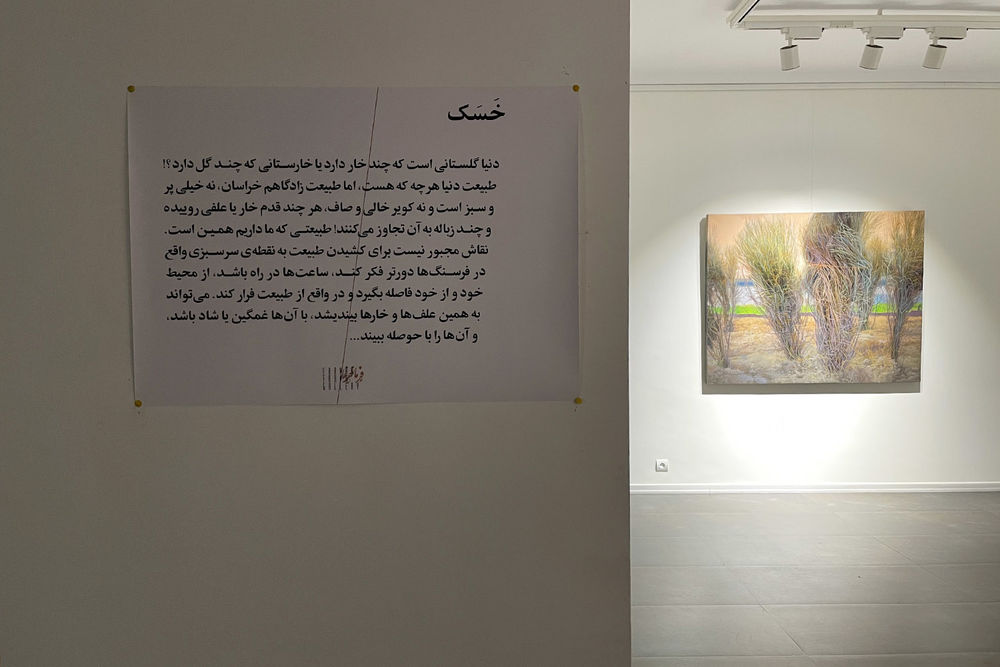 خَسَک
دنیا گلستانی است که چند خار دارد یا خارستانی که چند گل دارد؟!
طبیعت دنیا هرچه که هست، اما طبیعت زادگاهم خراسان، نه خیلی پر
و سبز است و نه کویر خالی و صاف، هر چند قدم خار یا علفی روییده
و چند زباله به آن تجاوز می‌کنند! طبیعتی که ما داریم همین است.
نقاش مجبور نیست برای کشیدن طبیعت به نقطه‌ی سرسبزی واقع
در فرسنگ‌ها دورتر فکر کند، ساعت‌ها در راه باشد، از محیط
خود و از خود فاصله بگیرد و در واقع از طبیعت فرار کند. می‌تواند
به همین علف‌ها و خارها بیندیشد، با آن‌ها غمگین یا شاد باشد،
و آن‌ها را با حوصله ببیند...